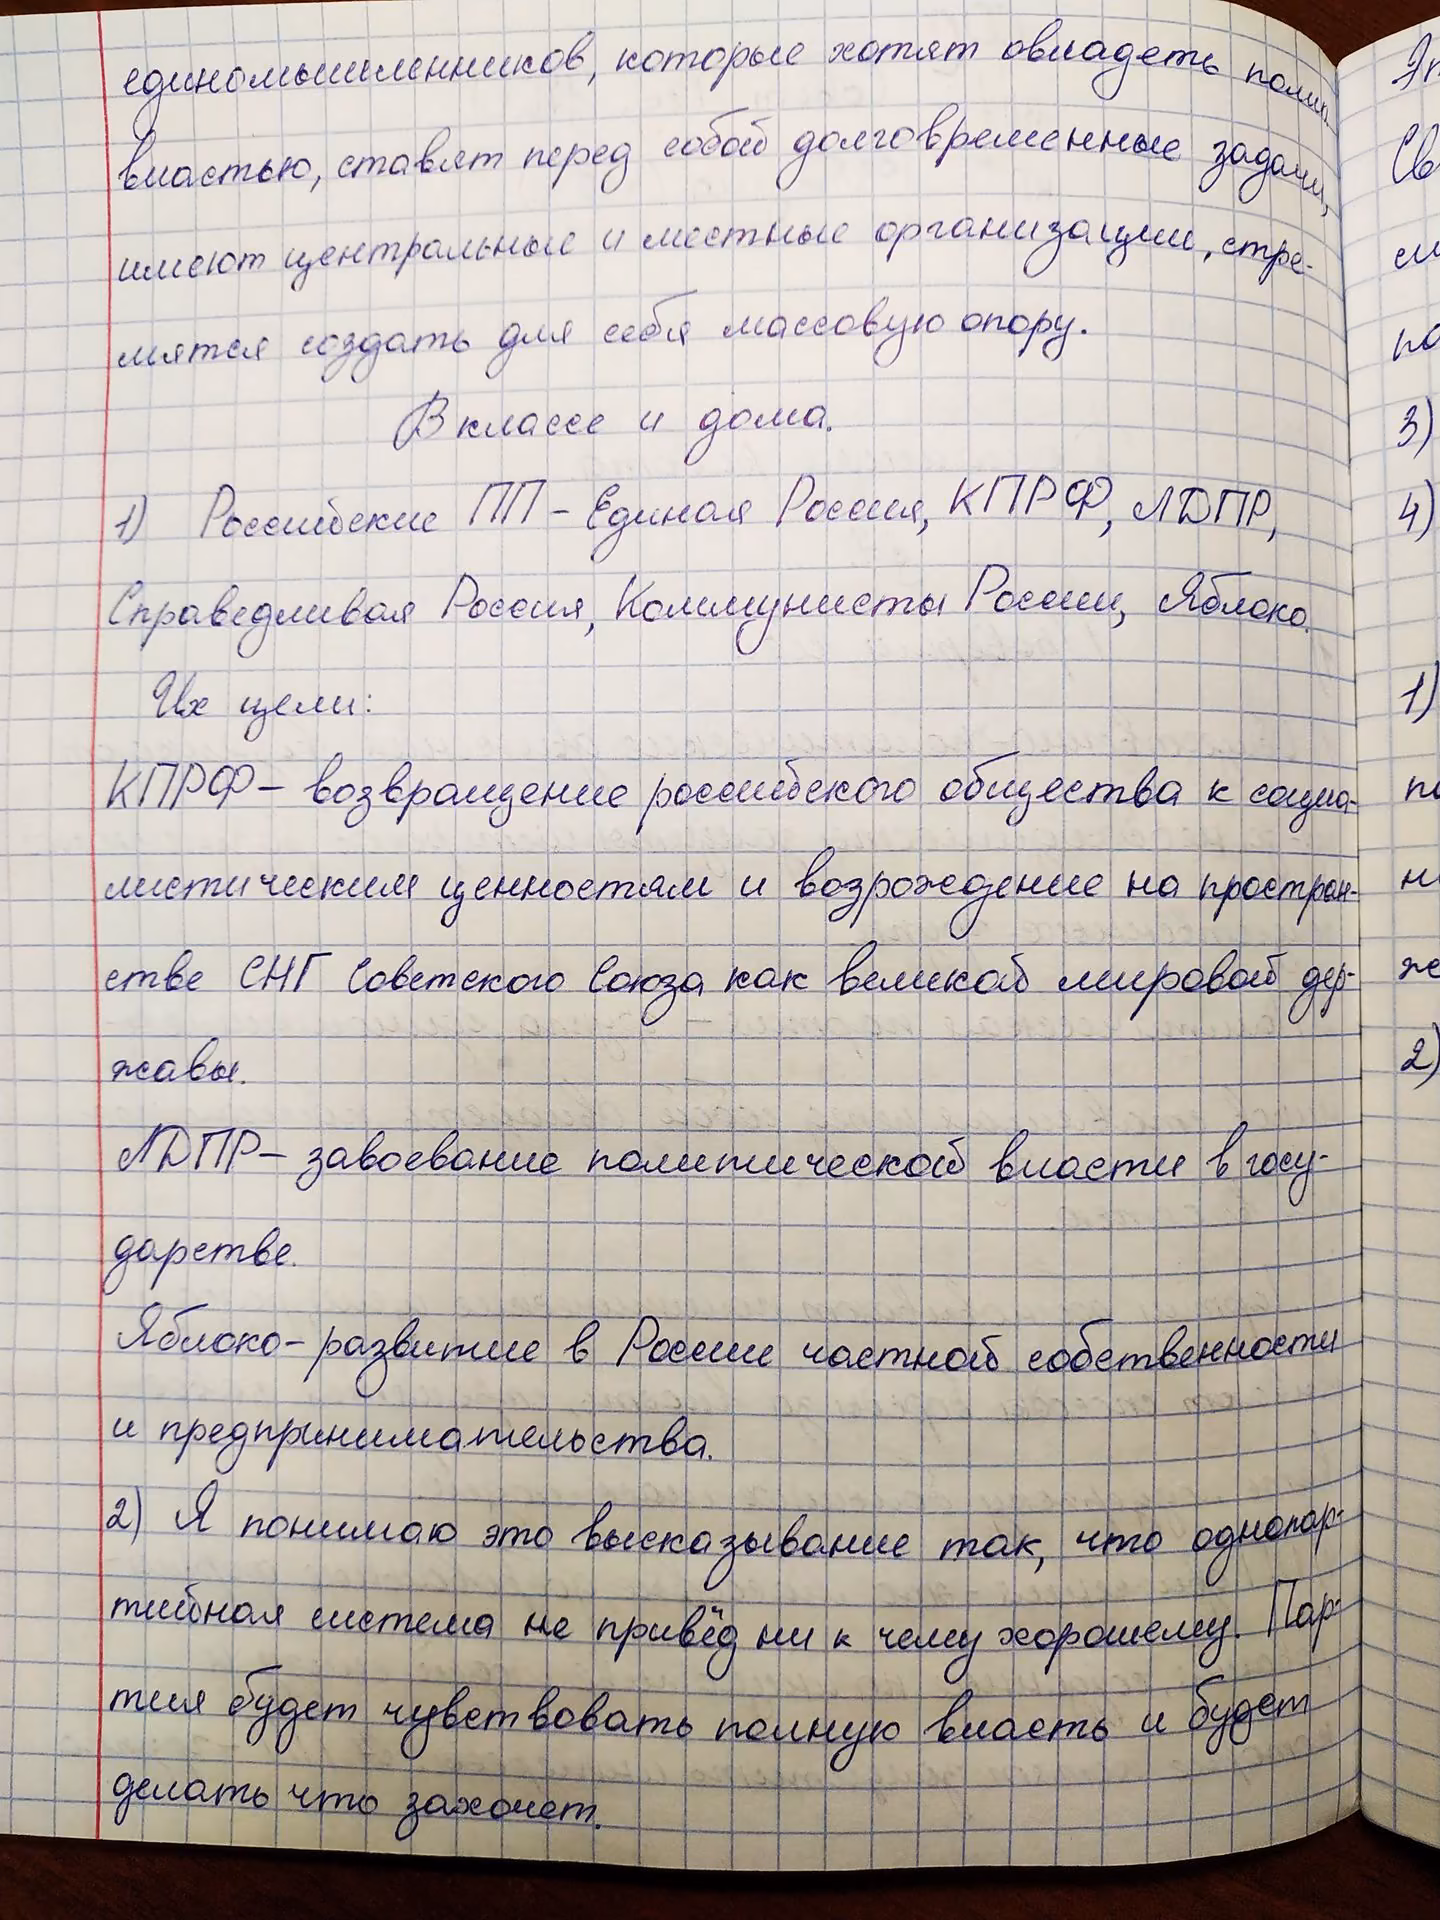 единомышленников, которые хотят овладеть полит.
властью, ставят перед собой долговременные задачи,
имеют центральные и местные организации, стре-
мятся создать для себя массовую опору.
В классе и дома.
1) Российские ПП - Единая Россия, КПРФ, ЛДПР,
Справедливая Россия, Коммунисты России, Яблоко.
Их цели:
КПРФ - возвращение российского общества к социа-
листическим ценностям и возрождение на простран-
стве СНГ Советского Союза как великой мировой дер-
жавы.
ЛДПР - завоевание политической власти в госу-
дарстве.
Яблоко - развитие в России частной собственности
и предпринимательства.
2) Я понимаю это высказывание так, что однопар-
тийная система не привёд ни к чему хорошему. Пар-
тия будет чувствовать полную власть и будет
делать что захочет.
3)
4)
1)
2)